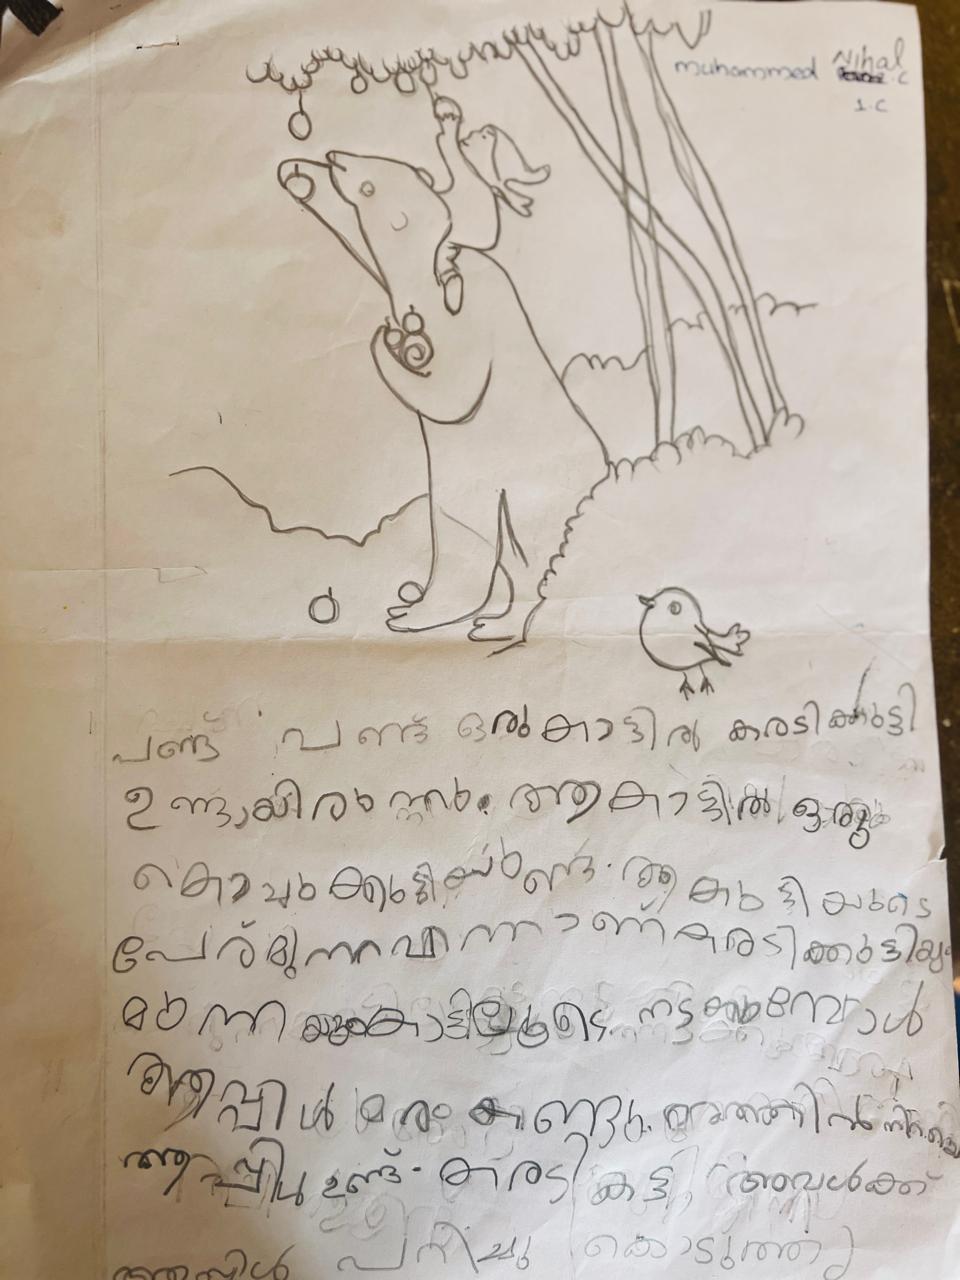 muhammed Nihal .C
1.C
പണ്ട് പണ്ട് ഒരു കാട്ടിൽ കരടികുട്ടി
ഉണ്ടായിരുന്നു. ആ കാട്ടിൽ ഒരു
കൊച്ചു കുട്ടിയുണ്ട്. ആ കുട്ടിയുടെ
പേര് മുന്നി എന്നാണ് കരടിക്കുട്ടിയും
മുന്നിയും കാട്ടിലൂടെ നടക്കുമ്പോൾ
ആപ്പിൾ മരം കണ്ടു. അതിൽ നിറയെ
ആപ്പിൾ ഉണ്ട്. കരടി കുട്ടി അവൾക്ക്
ആപ്പിൾ പറിച്ചു കൊടുത്തു